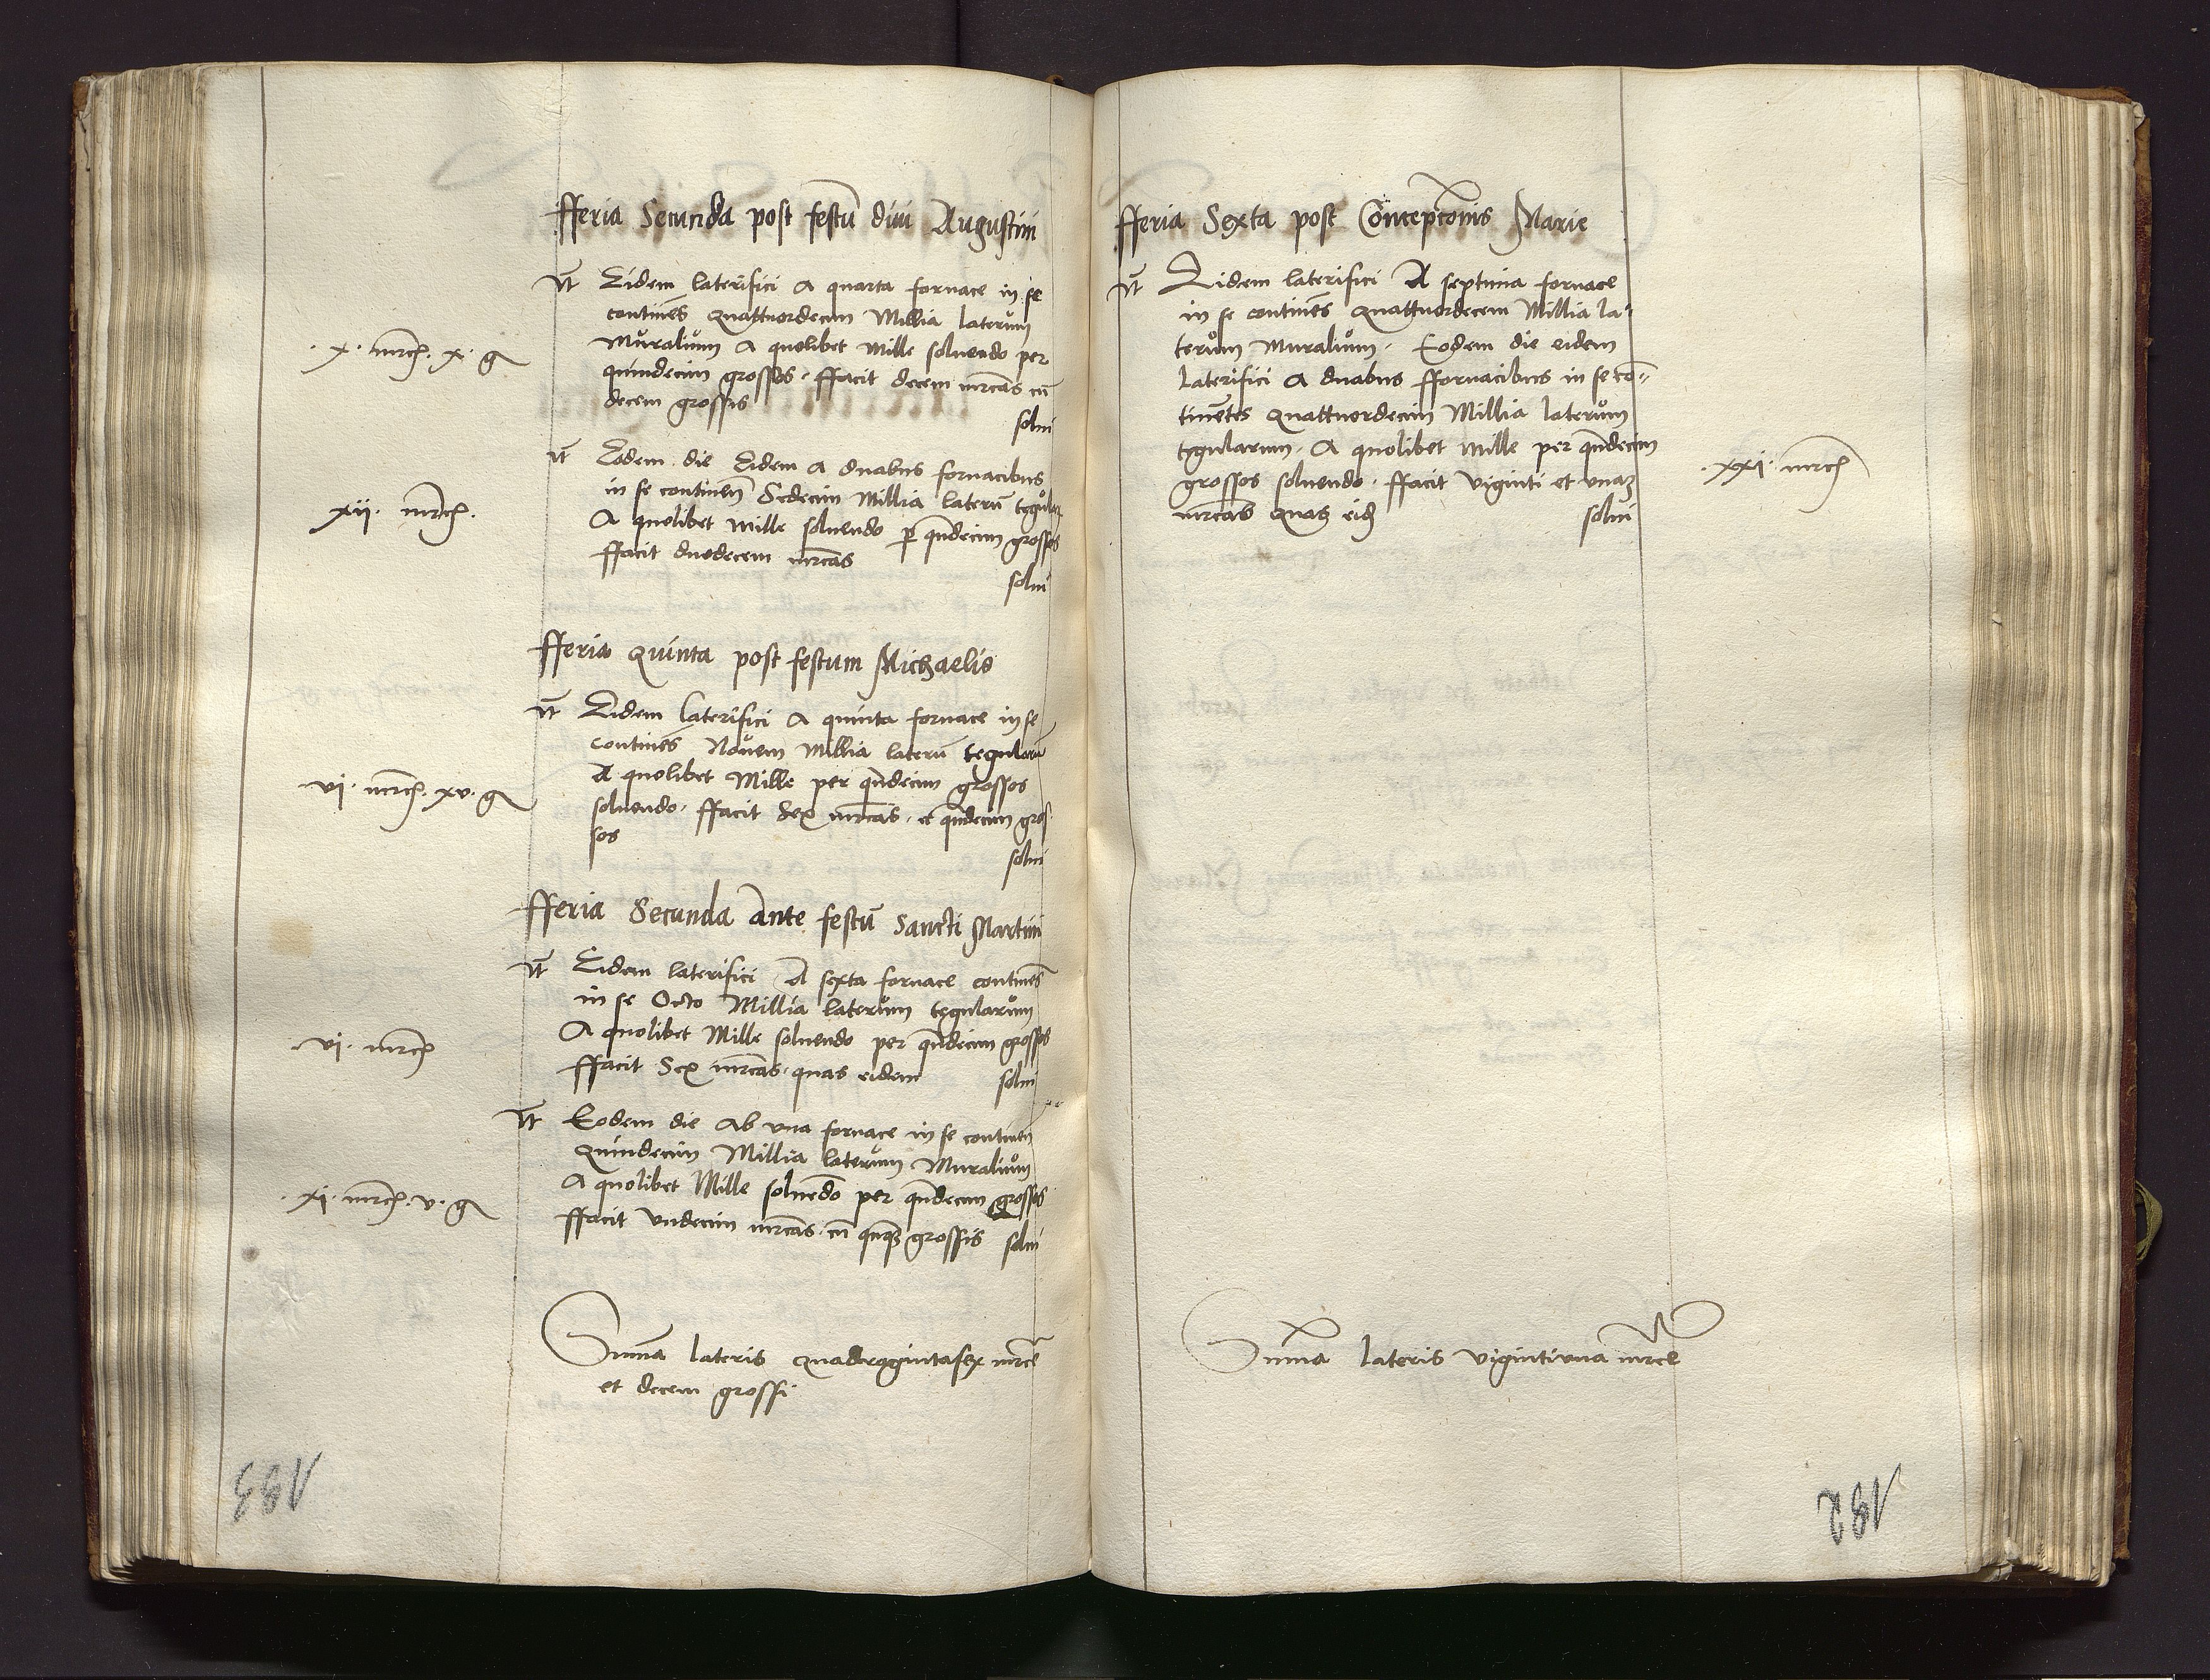 fferia Secunda post festū diui Augustini
Itē Eidem laterifici A quarta fornace in se
continēs Quattuordecim Millia laterum
Muralium A quolibet Mille soluendo per
·x· mrch· x· g
quindecim grossos· ffacit decem mrcas cū
decem grossis
solui
Itē Eodem die Eidem A duabus fornacibus
in se continen̄ Sedecim Millia laterū tegular
xii· mrch·
A quolibet Mille soluendo p̱ qndecim grossos
ffacit duodecem mrcas
solui
fferia Quinta post festum Michaelis
Itē Eidem laterifici A quinta fornace in se
continēs Nouem Millia laterū tegularū
A quolibet Mille per qndecim grossos
vi· mrch· xv· g
soluendo· ffacit Sex mrcas· et qndecim gros
sos
solui
fferia Secunda Ante festū Sancti Martini
Itē Eidem laterifici A sexta fornace continēs
in se Octo Millia laterum tegularum
A quolibet Mille soluendo per qndecim grossos
vi· mrch
ffacit Sex mrcas· quas eidem solui
Itē Eodem die Ab vna fornace in se continen̄
Quindecim Millia laterum Muralium
A quolibet Mille soluēdo per qndecim grossos
·xi· mrch· v· g
ffacit Vndecim mrcas· cū qnqȝ grossis solui
Summa lateris quadragintasex mrce
et decem grossi
183
fferia Sexta post Cōncepcōnis Marie
Itē Eidem laterifici A septima fornace
in se continēs Quattuordecem Millia la-
terum Muralium· Eodem die eidem
laterifici A duabus ffornacibus in se cō-
tinētes Quattuordecim Millia laterum
tegularum· A quolibet Mille per qndecim
·xxi· mrch
grossos soluendo· ffacit Viginti et vnaȝ
mrcas quas eid solui
Summa lateris vigintivna mrce
182